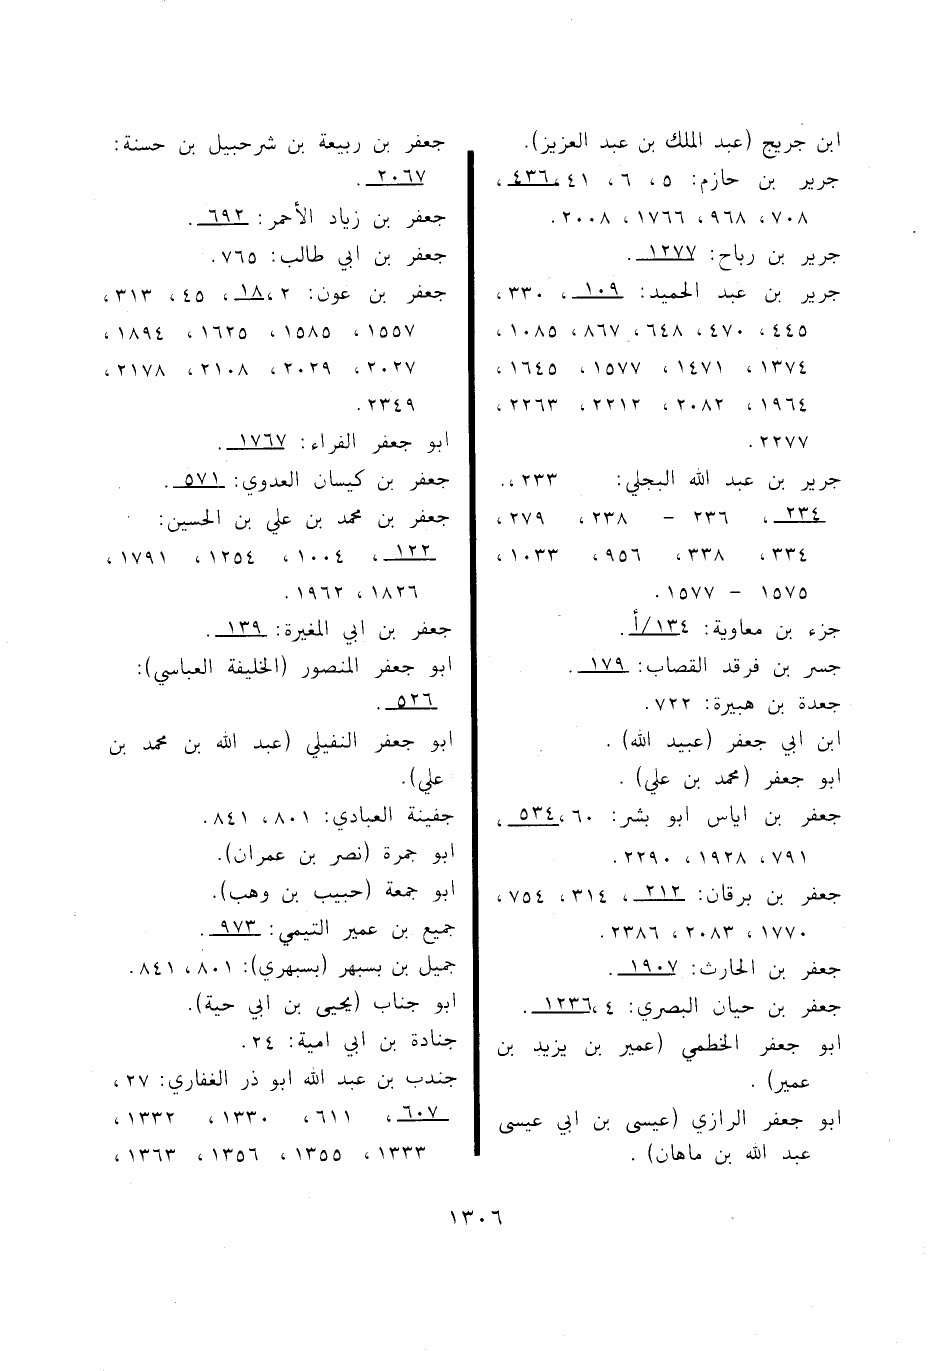 ابن جريج (عبد الملك بن عبد العزيز).
جرير بن حازم: ٥، ٦، ٤١، ٤٣٦،
٧٠٨، ٩٦٨، ١٧٦٦، ٢٠٠٨.
جرير بن رباح: ١٢٧٧.
جرير بن عبد الحميد: ١٠٩، ٣٣٠،
٤٤٥، ٤٧٠، ٦٤٨، ٨٦٧، ١٠٨٥،
١٣٧٤، ١٤٧١، ١٥٧٧، ١٦٤٥،
١٩٦٤، ٢٠٨٢، ٢٢١٢، ٢٢٦٣،
٢٢٧٧.
جرير بن عبد الله البجلي: ٢٣٣،.
٢٣٤، ٢٣٦ – ٢٣٨، ٢٧٩،
٣٣٤، ٣٣٨، ٩٥٦، ١٠٣٣،
١٥٧٥ – ١٥٧٧.
جزء بن معاوية: ١٣٤/أ.
جسر بن فرقد القصاب: ١٧٩.
جعدة بن هبيرة: ٧٢٢.
ابن ابي جعفر (عبيد الله).
ابو جعفر (محمد بن علي).
جعفر بن اياس ابو بشر: ٦٠، ٥٣٤،
٧٩١، ١٩٢٨، ٢٢٩٠.
جعفر بن برقان: ٢١٢، ٣١٤، ٧٥٤،
١٧٧٠، ٢٠٨٣، ٢٣٨٦.
جعفر بن الحارث: ١٩٠٧.
جعفر بن حيان البصري: ٤، ١٢٣٦.
ابو جعفر الخطمي (عمير بن يزيد بن
عمير).
ابو جعفر الرازي (عيسى بن ابي عيسى
عبد الله بن ماهان).
جعفر بن ربيعة بن شرحبيل بن حسنة:
٢٠٦٧.
جعفر بن زياد الأحمر: ٦٩٢.
جعفر بن ابي طالب: ٧٦٥.
جعفر بن عون: ٢، ١٨، ٤٥، ٣١٣،
١٥٥٧، ١٥٨٥، ١٦٢٥، ١٨٩٤،
٢٠٢٧، ٢٠٢٩، ٢١٠٨، ٢١٧٨،
٢٣٤٩.
ابو جعفر الفراء: ١٧٦٧.
جعفر بن كيسان العدوي: ٥٧١.
جعفر بن محمد بن علي بن الحسين:
١٢٢، ١٠٠٤، ١٢٥٤، ١٧٩١،
١٨٢٦، ١٩٦٢.
جعفر بن ابي المغيرة: ١٣٩.
ابو جعفر المنصور (الخليفة العباسي):
٥٢٦.
ابو جعفر النفيلي (عبد الله بن محمد بن
علي).
جفينة العبادي: ٨٠١، ٨٤١.
ابو جمرة (نصر بن عمران).
ابو جمعة (حبيب بن وهب).
جميع بن عمير التيمي: ٩٧٣.
جميل بن بسبهر (بسبهري): ٨٠١، ٨٤١.
ابو جناب (يحيى بن ابي حية).
جنادة بن ابي امية: ٢٤.
جندب بن عبد الله ابو ذر الغفاري: ٢٧،
٦٠٧، ٦١١، ١٣٣٠، ١٣٣٢،
١٣٣٣، ١٣٥٥، ١٣٥٦، ١٣٦٣،
١٣٠٦